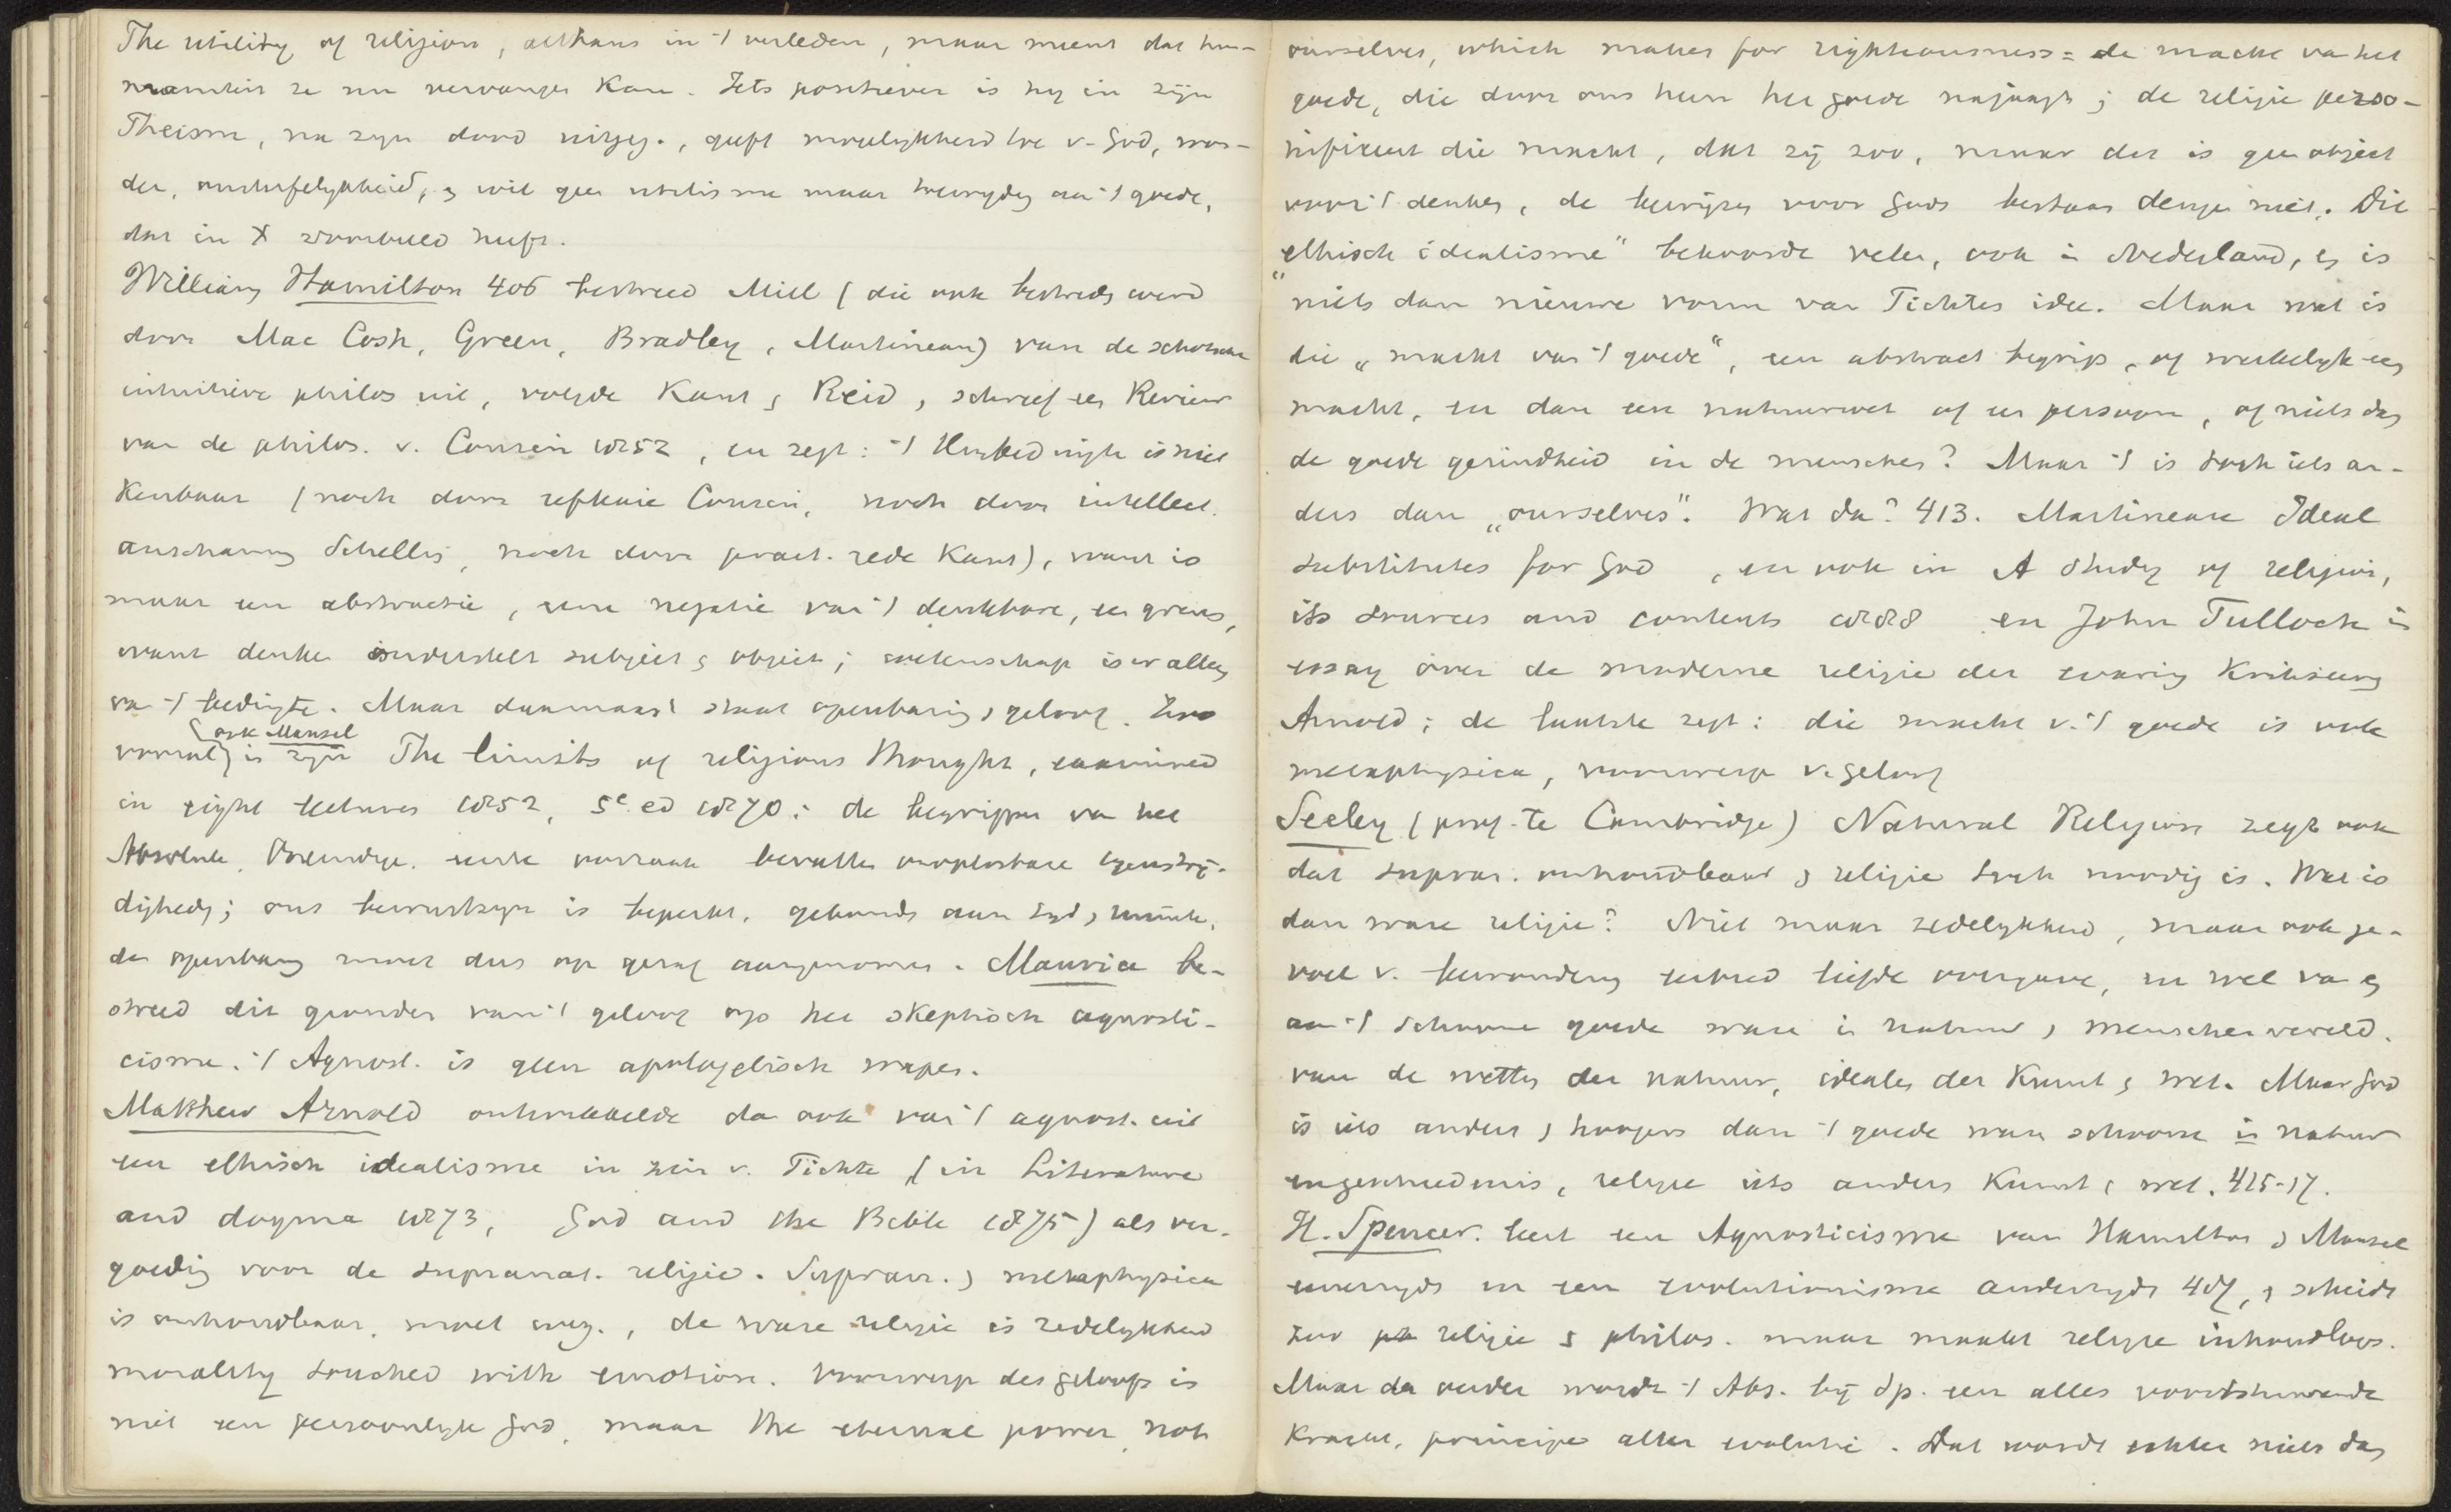 The utility of religion, althans in 't verleden, maar meent dat hu-
maniteit ze nu vervangen kan. Iets positiever is hij in zijn
Theism, na zijn dood uitgeg., geeft moeilijkheid toe v. God, won-
der, onsterfelykheid, & wil geen utilisme maar toewyding aan 't goede,
dat in X voorbeeld heeft.
William Hamilton 406 bestreed Mill (die ook bestreden werd
door Mac Cosh, Green, Bradley, Martineau) van de schotsche
intuitieve philos uit, volgde Kant & Reid, schreef een Review
van de philos. v. Cousin 1852, en zegt: 't Unbedingte is niet
kenbaar (noch door reflexie Cousin, noch door intellect.
anschauung Schelling, noch door pract. rede Kant), want is
maar een abstractie, eene negatie van 't denkbare, een grens,
want denken onderstelt subject & object; wetenschap is er alleen
van 't bedingte. Maar daarnaast staat openbaring & geloof. Zoo
vooral (ook Mansel) in zijn The limits of religious thought, examined
in eight lectures 1852, 5e ed 1870: de begrippen van het
Absolute, Oneindige, eerste oorzaak bevatten onoplosbare tegenstrij-
digheden; ons bewustzyn is beperkt, gebonden aan tyd & ruimte,
de openbaring moet dus op gezag aangenomen. Maurice be-
streed dit gronden van 't geloof op het skeptisch agnosti-
cisme. 't Agnost. is geen apologetisch wapen.
Matthew Arnold ontwikkelde dan ook van 't agnost. uit
een ethisch idealisme in zin v. Fichte (in Literature
and dogma 1873, God and the Bible 1875) als ver-
goeding voor de supranat. religie. Supran. & metaphysica
is onhoudbaar, moet weg., de ware religie is zedelykheid
morality touched with emotion. Voorwerp des geloofs is
niet een persoonlyk God, maar the eternal power, not
ourselves, which makes for righteousness = de macht van het
goede, die door ons heen het goede najaagt; de religie perso-
nifieert die macht, dat zij zoo, maar dit is geen object
voor 't denken, de bewijzen voor Gods bestaan deugen niet. Dit
"ethisch idealisme" bekoorde velen, ook in Nederland, & is
niets dan nieuwe vorm van Fichtes idee. Maar wat is
die „macht van 't goede", een abstract begrip, of werkelyk een
macht, en dan een natuurwet of een persoon, of niets dan
de goede gezindheid in de menschen? Maar 't is toch iets an-
ders dan „ourselves". Wat dan? 413. Martineau Ideal
substitutes for God, en ook in A Study of religion,
its sources and contents 1888 en John Tulloch in
essay over de moderne religie der ervaring kritiseeren
Arnold; de laatste zegt: die macht v. 't goede is ook
metaphysica, voorwerp v. geloof
Seeley (prof. te Cambridge) Natural Religion zegt ook
dat supran. onhoudbaar & religie toch noodig is. Wat is
dan ware religie? Niet maar zedelykheid, maar ook ge-
voel v. bewondering eerbied liefde overgave, en wel van &
aan 't schoone goede ware in natuur & menschenwereld.
van de wetten der natuur, idealen der kunst & wet. Maar God
is iets anders & hoogers dan 't goede ware schoone in natuur
en geschiedenis, religie iets anders kunst & wet. 415-17.
H. Spencer. leert een Agnosticisme van Hamilton & Mansel
eenerzyds en een evolutionisme anderzyds 407, & scheidt
zoo religie & philos. maar maakt religie inhoudloos.
Maar dan verder wordt 't Abs. bij Sp. een alles voortstuwende
kracht, principe aller evolutie. Dat wordt echter niets dan